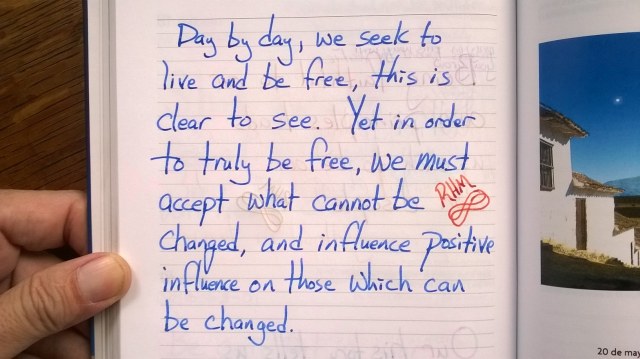 Day by day, we seek to
live and be free, this is
clear to see. Yet in order
to truly be free, we must
accept what cannot be RHM
changed, and influence positive
influence on those which can
be changed.
20 de may